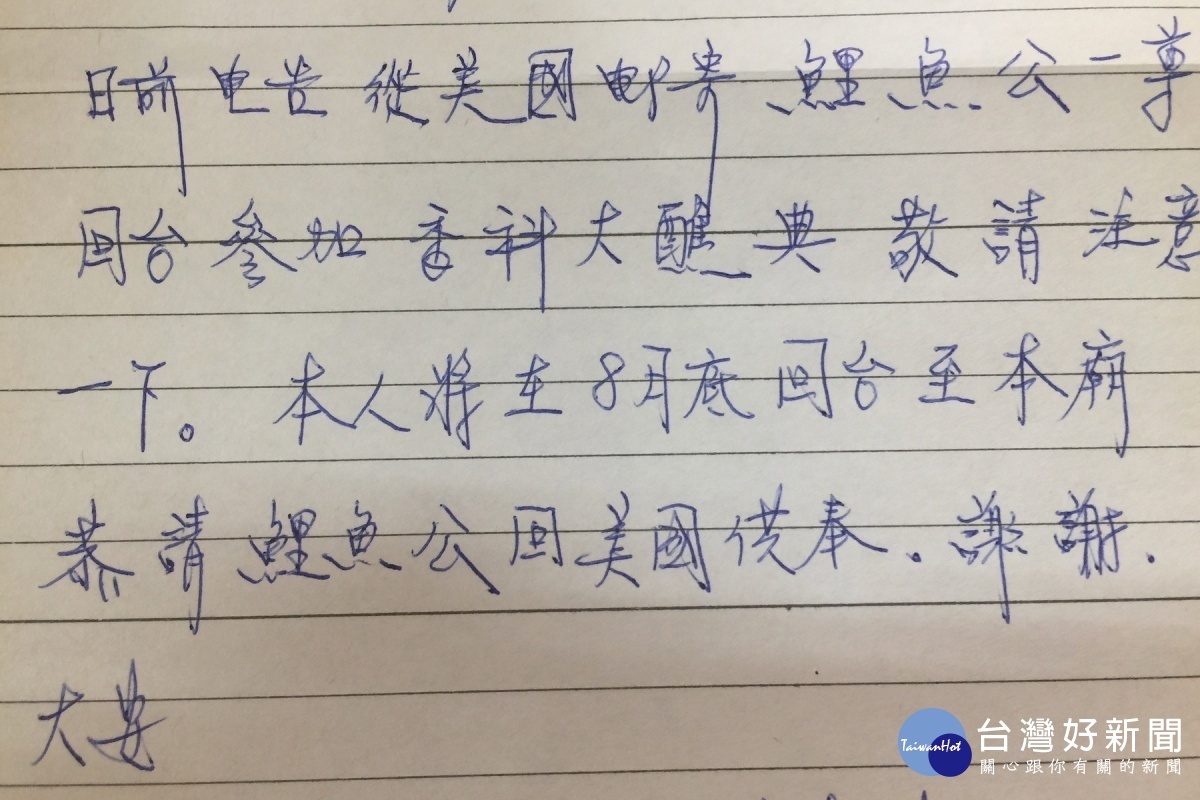 日前电告 從美國邮寄 鯉魚公一尊
回台參加 香科大醮典 敬請注意
一下。 本人將在8月底回台至本廟
恭請鯉魚公回美國供奉.謝謝.
大安
TaiwanHot 台灣好新聞
關心跟你有關的新聞